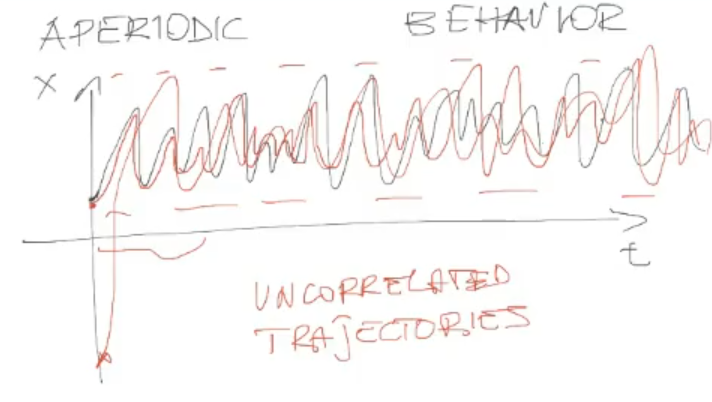 APERIODIC BEHAVIOR
x
t
UNCORRELATED
TRAJECTORIES